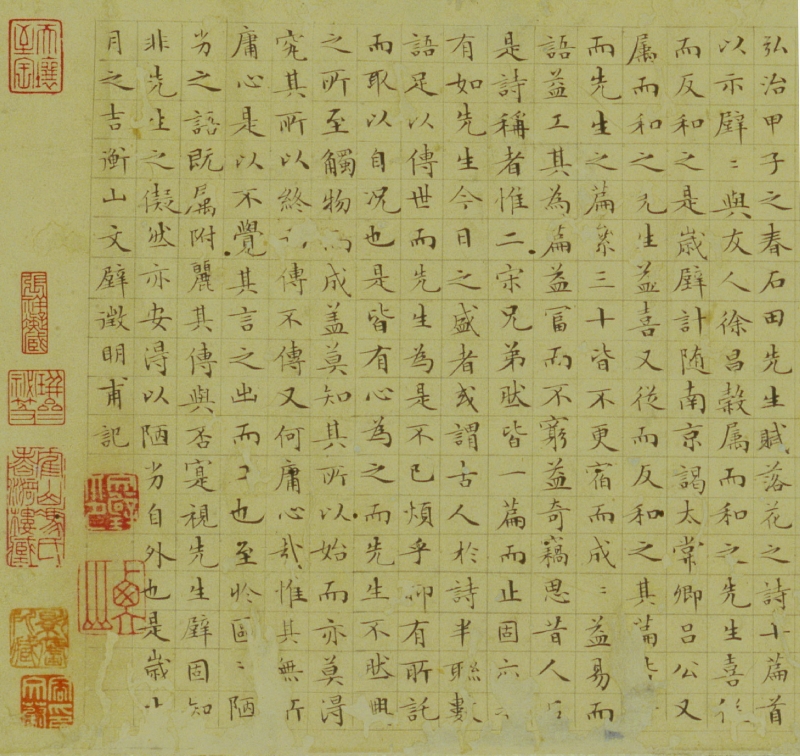 弘治甲子之春石田先生賦落花之詩十篇首
以示璧〻與友人徐昌穀屬而和之先生喜從
而反和之是歲璧計隨南京謁太常卿呂公又
屬而和之先生益喜又從而反和之其篇
而先生之篇累三十皆不更宿而成〻益易而
語益工其為篇益富而不窮益奇竊思昔人
是詩稱者惟二宋兄弟然皆一篇而止固六
有如先生今日之盛者或謂古人於詩半聯數
語足以傳世而先生為是不已煩乎抑有所託
而取以自況也是皆有心為之而先生不然興
之所至觸物而成蓋莫知其所以始而亦莫得
究其所以終傳不傳又何庸心哉惟其無所
庸心是以不覺其言之出而工也至於區〻陋
劣之語既屬附麗其傳與否寔視先生璧固知
非先生之儗然亦安得以陋劣自外也是歲十
月之吉衡山文璧徵明甫記